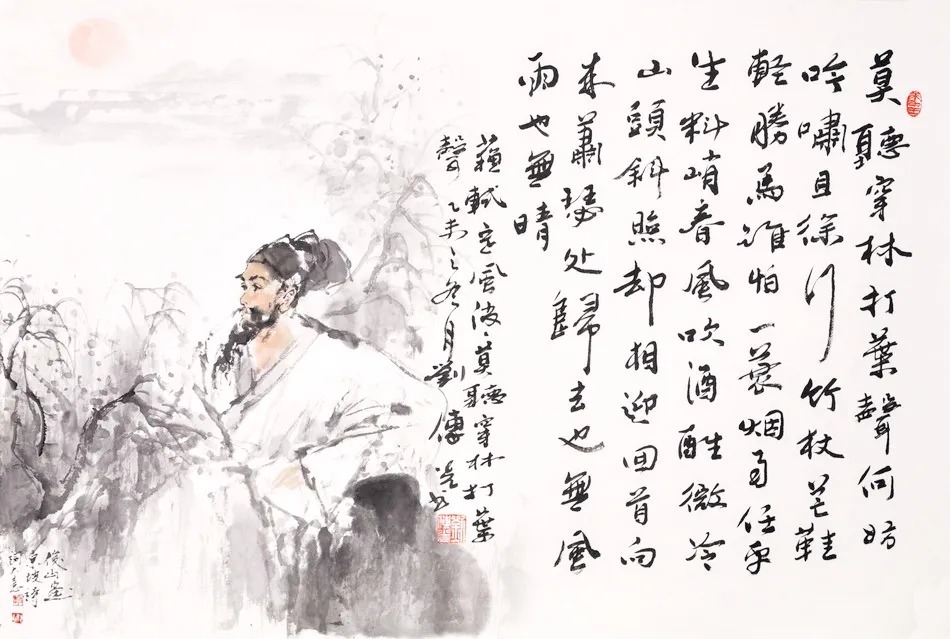 莫聽穿林打葉聲何妨
吟嘯且徐行竹杖芒鞋
輕勝馬誰怕一蓑烟雨任平
生料峭春風吹酒醒微冷
山頭斜照却相迎回首向
来蕭瑟处歸去也無風
雨也無晴
蘇軾定風波莫聽穿林打葉
聲乙未之冬月劉傳书
俊山画
東坡詩
詞意